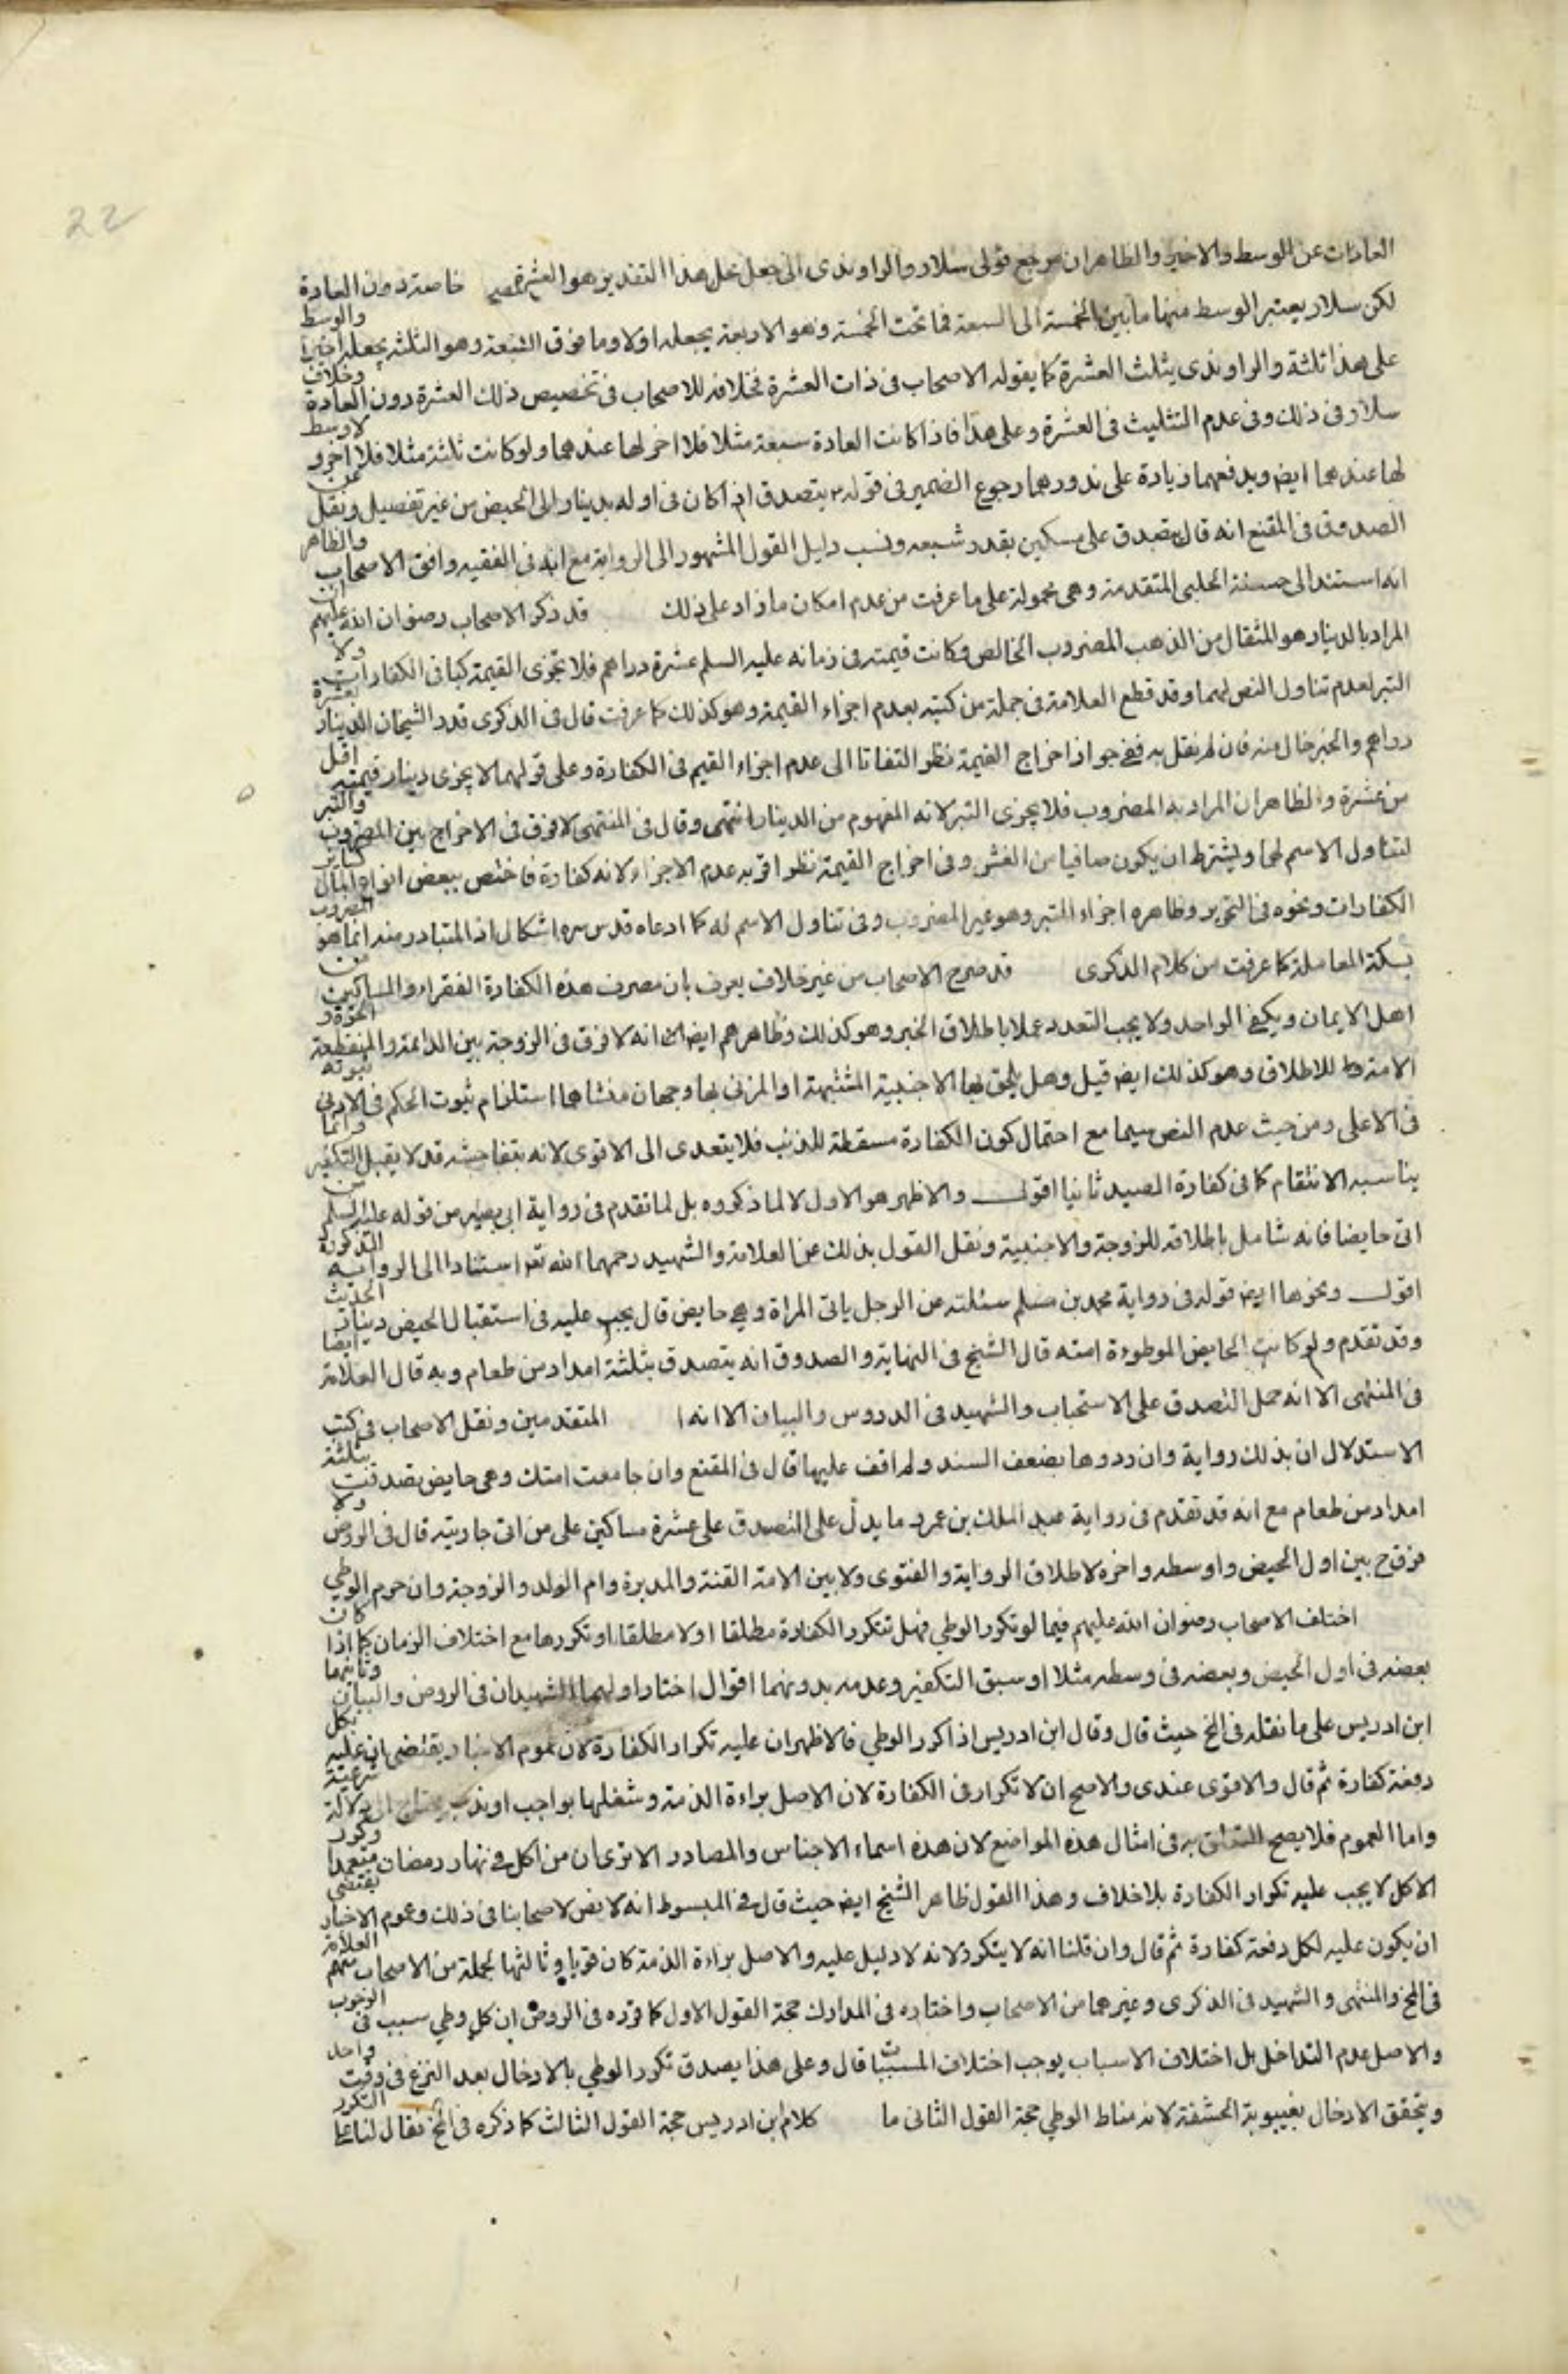 22
العادات عن الوسط والاخير والظاهر ان مرجع قولى سلار والراوندى الى جعل محل هذا التقدير هو العشرة خاصة دون العادة
لكن سلار يعتبر الوسط منها ما بين الخمسة الى السبعة فما تحت الخمسة وهو الاربعة يجعله اولا وما فوق السبعة وهو الثلثة يجعله اخيرا والوسط
على هذا ثلثة والراوندى يثلث العشرة كما يقوله الاصحاب فى ذات العشرة فخلافه للاصحاب فى تخصيص ذلك العشرة دون العادة وخلاف
سلار فى ذلك وفى عدم التثليث فى العشرة وعلى هذا فاذا كانت العادة سبعة مثلا فلا اخر لها عندهما ولو كانت ثلثة مثلا فلا اخر ولا وسط
لها عندهما ايض ويدفعهما زيادة على ندورهما رجوع الضمير فى قوله يتصدق اذا كان فى اوله بدينار الى الحيض من غير تفصيل ونقل عن
الصدوق فى المقنع انه قال يتصدق على مسكين بقدر شبعه ونسب دليل القول المشهور الى الرواية مع انه فى الفقيه وافق الاصحاب والظاهر
انه استند الى حسنة الحلبى المتقدمة وهى محمولة على ما عرفت من عدم امكان ما زاد على ذلك قد ذكر الاصحاب رضوان الله عليهم ان
المراد بالدينار هو المثقال من الذهب المضروب الخالص وكانت قيمته فى زمانه عليه السلم عشرة دراهم فلا تجزى القيمة كباقى الكفارات ولا
التبر لعدم تناول النص لهما وقد قطع العلامة فى جملة من كتبه بعدم اجزاء القيمة وهو كذلك كما عرفت قال فى الذكرى قدر الشيخان الدينار بعشرة
دراهم والخبر خال منه فان لم نقل به ففى جواز اخراج القيمة نظر التفاتا الى عدم اجزاء القيم فى الكفارة وعلى قولهما لا يجزى دينار قيمته اقل
من عشرة والظاهر ان المراد به المضروب فلا يجزى التبر لانه المفهوم من الدينار انتهى وقال فى المنتهى لا فرق فى الاخراج بين المضروب والتبر
لتناول الاسم لهما ويشترط ان يكون صافيا من الغش وفى اخراج القيمة نظر اقربه عدم الاجزاء لانه كفارة فاختص ببعض انواع المال كساير
الكفارات ونحوه فى التحرير وظاهره اجزاء التبر وهو غير المضروب وفى تناول الاسم له كما ادعاه قدس سره اشكال اذ المتبادر منه انما هو المضروب
بسكة المعاملة كما عرفت من كلام الذكرى قد صرح الاصحاب من غير خلاف يعرف بان مصرف هذه الكفارة الفقراء والمساكين من
اهل الايمان ويكفى الواحد ولا يجب التعدد عملا باطلاق الخبر وهو كذلك وظاهرهم ايض انه لا فرق فى الزوجة بين الدائمة والمنقطعة الحرة و
الامة للاطلاق وهو كذلك ايض قيل وهل يلحق بها الاجنبية المشتبهة او المزنى بها وجهان منشاهما استلزام ثبوت الحكم فى الادنى ثبوته
فى الاعلى ومن حيث عدم النص سيما مع احتمال كون الكفارة مسقطة للذنب فلا يتعدى الى الاقوى لانه بتفاحشه قد لا يقبل التكفير وانما
يناسبه الانتقام كما فى كفارة الصيد ثانيا اقول والاظهر هو الاول لا لما ذكروه بل لما تقدم فى رواية ابى بصير من قوله عليه السلم من
اتى حايضا فانه شامل باطلاقه للزوجة والاجنبية ونقل القول بذلك عن العلامة والشهيد رحمهما الله تعم استنادا الى الرواية المذكورة
اقول ونحوها ايض قوله فى رواية محمد بن مسلم سئلته عن الرجل ياتى المراة وهى حايض قال يجب عليه فى استقبال الحيض دينار الحديث
وقد تقدم ولو كانت الحايض الموطوءة امته قال الشيخ فى النهاية والصدوق انه يتصدق بثلثة امداد من طعام وبه قال العلامة ايضا
فى المنتهى الا انه حمل التصدق على الاستحباب والشهيد فى الدروس والبيان الا انه ا المتقدمين ونقل الاصحاب فى كتب
الاستدلال ان بذلك رواية وان ردوها بضعف السند ولم اقف عليها قال فى المقنع وان جامعت امتك وهى حايض تصدقت بثلثة
امداد من طعام مع انه قد تقدم فى رواية عبد الملك بن عمرو ما يدل على التصدق على عشرة مساكين على من اتى جاريته قال فى الروض ولا
فرق بين اول الحيض واوسطه واخره لاطلاق الرواية والفتوى ولا بين الامة القنة والمدبرة وام الولد والزوجة وان حرم الوطي
اختلف الاصحاب رضوان الله عليهم فيما لو تكرر الوطي فهل تتكرر الكفارة مطلقا او لا مطلقا او تكررها مع اختلاف الزمان كما اذا كان
بعضه فى اول الحيض وبعضه فى وسطه مثلا او سبق التكفير وعدمه بدونهما اقوال اختار اولهما الشهيدان فى الروض والبيان وثانيهما
ابن ادريس على ما نقله فى المخ حيث قال وقال ابن ادريس اذا كرر الوطي فالاظهر ان عليه تكرار الكفارة لان عموم الاخبار يقتضى ان عليه بكل
دفعة كفارة ثم قال والاقوى عندى والاصح ان لا تكرار فى الكفارة لان الاصل براءة الذمة وشغلها بواجب او ندب يحتاج الى دلالة شرعية
واما العموم فلا يصح التعلق به فى امثال هذه المواضع لان هذه اسماء الاجناس والمصادر الا ترى ان من اكل فى نهار رمضان متعمدا وكرر
الاكل لا يجب عليه تكرار الكفارة بلا خلاف وهذا القول ظاهر الشيخ ايض حيث قال فى المبسوط انه لا نص لاصحابنا فى ذلك وعموم الاخبار يقتضى
ان يكون عليه لكل دفعة كفارة ثم قال وان قلنا انه لا يتكرر لانه لا دليل عليه والاصل براءة الذمة كان قويا وثالثها لجملة من الاصحاب منهم العلامة
فى المخ والمنتهى والشهيد فى الذكرى وغيرهما من الاصحاب واختاره فى المدارك حجة القول الاول كما قرره فى الروض ان كل وطي سبب فى الوجوب
والاصل عدم التداخل بل اختلاف الاسباب يوجب اختلاف المسببات قال وعلى هذا يصدق تكرر الوطي بالادخال بعد النزع فى وقت واحد
ويتحقق الادخال بغيبوبة الحشفة لانه مناط الوطي حجة القول الثانى ما كلام ابن ادريس حجة القول الثالث كما ذكره فى المخ فقال لنا على التكرر